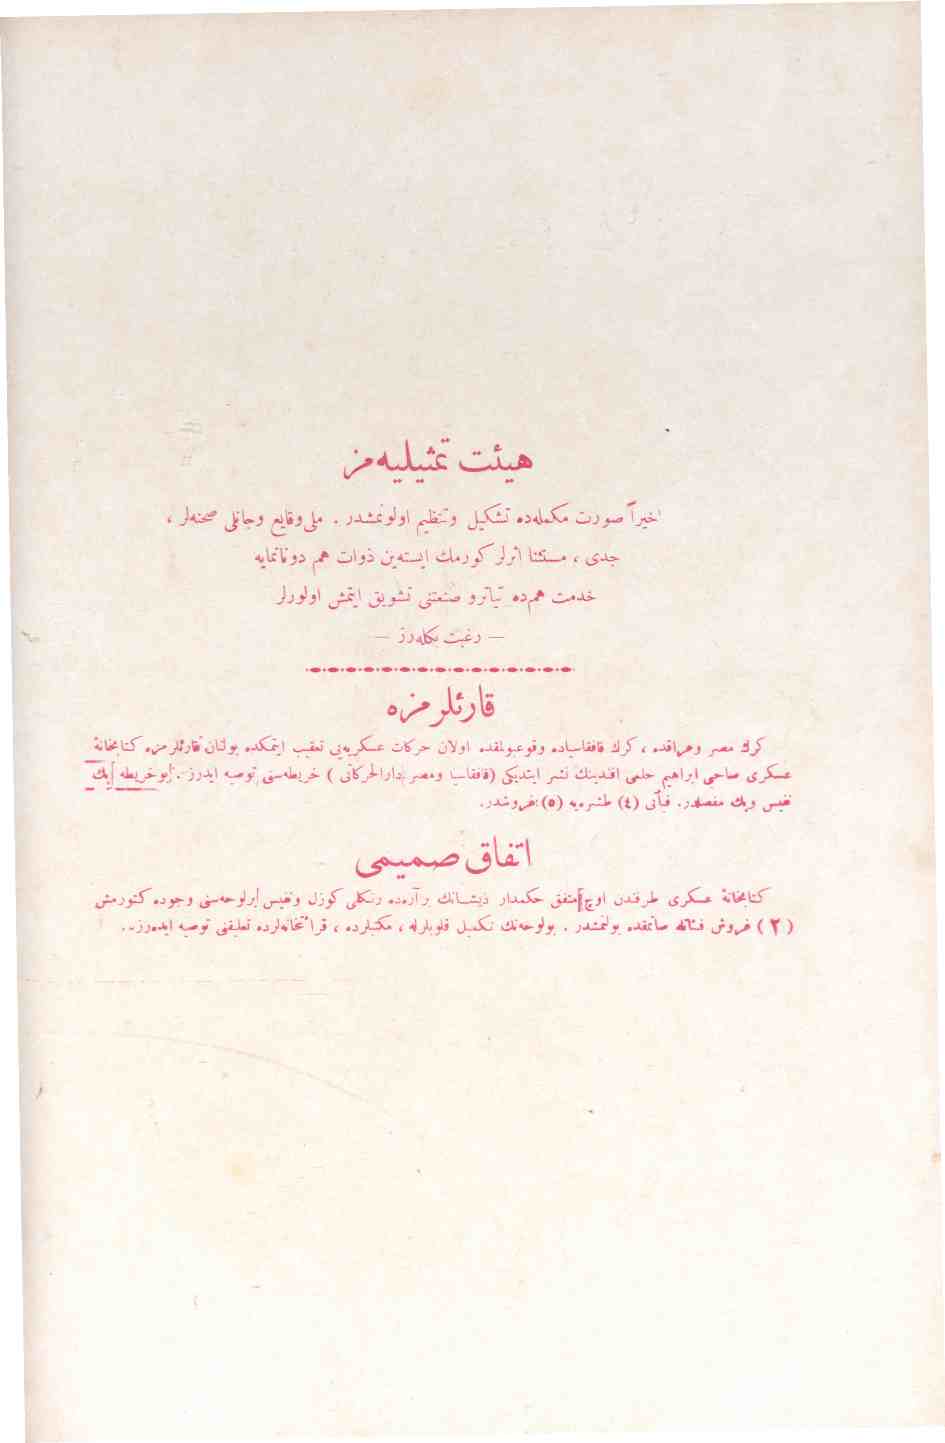 هيئت تمثيليه‌مز
اخيراً صورت مكمله‌ده تشكيل وتنظيم اولونمشدر . ملى وقايع وجانلى صحنه‌لر ،
جدى ، مستثنا اثرلر كورمك ايسته‌ين ذوات هم دونانمايه
خدمت هم‌ده تياترو صنعتنى تشويق ايتمش اولورلر
— رغبت بكله‌رز —
قارئلرمزه
كرك مصر وعراقده ، كرك قافقاسياده وقوعبولمقده اولان حركات عسكريه‌يى تعقيب ايتمكده بولنان قارئلرمزه كتابخانهٔ
عسكرى صاحبى ابراهيم حلمى افندينك نشر ايتديكى (قافقاسيا ومصر دارالحركاتى ) خريطه‌سنى توصيه ايدرز . بو خريطه پك
نفيس وپك مفصلدر. فيأتى (٤) طشره‌يه (٥) غروشدر.
اتفاق صميمى
كتابخانهٔ عسكرى طرفندن اوچ متفق حكمدار ذيشانك بر آره‌ده رنكلى كوزل ونفيس بر لوحه‌سنى وجوده كتورمش
(٢) غروش فيأتله صاتمقده بولنمشدر . بو لوحه‌نك تكميل قلوبلرله ، مكتبلرده ، قرائتخانه‌لرده تعليقنى توصيه ايده‌رز..